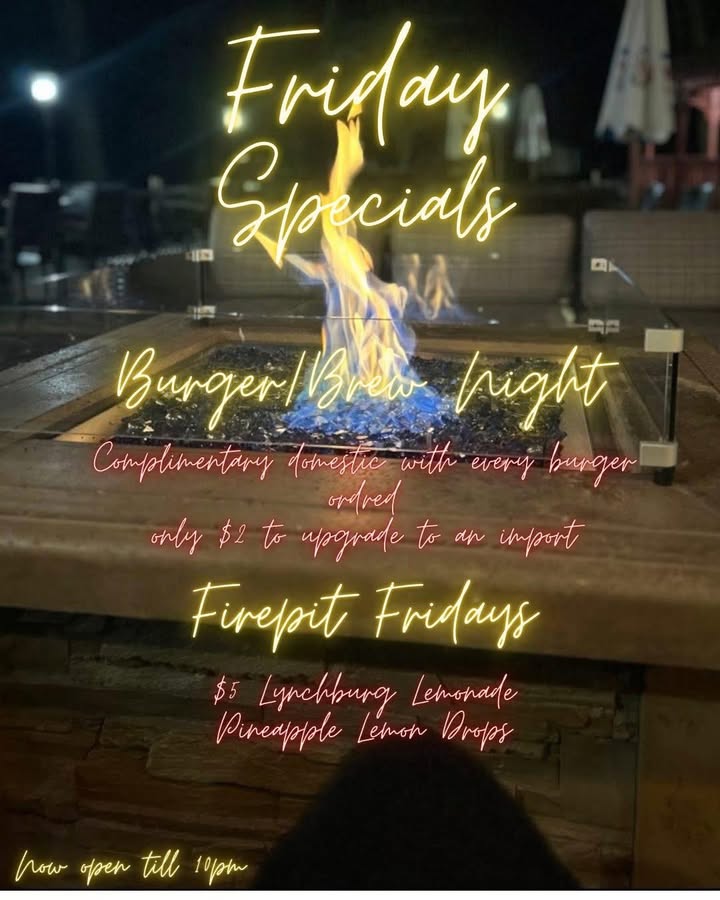 Friday
Specials
Burger/Brew Night
Complimentary domestic with every burger
ordred
only $2 to upgrade to an import
Firepit Fridays
$5 Lynchburg Lemonade
Pineapple Lemon Drops
now open till 10pm